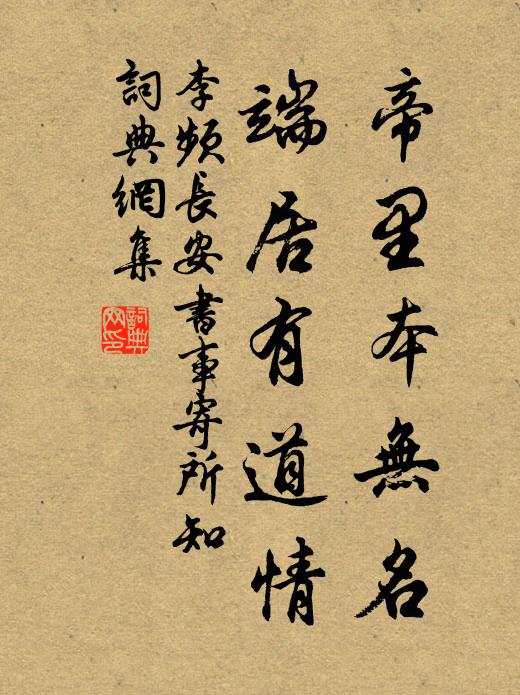 帝里本無名
端居有道情
李頻長安書事寄所知
詞典網集
詞典網印